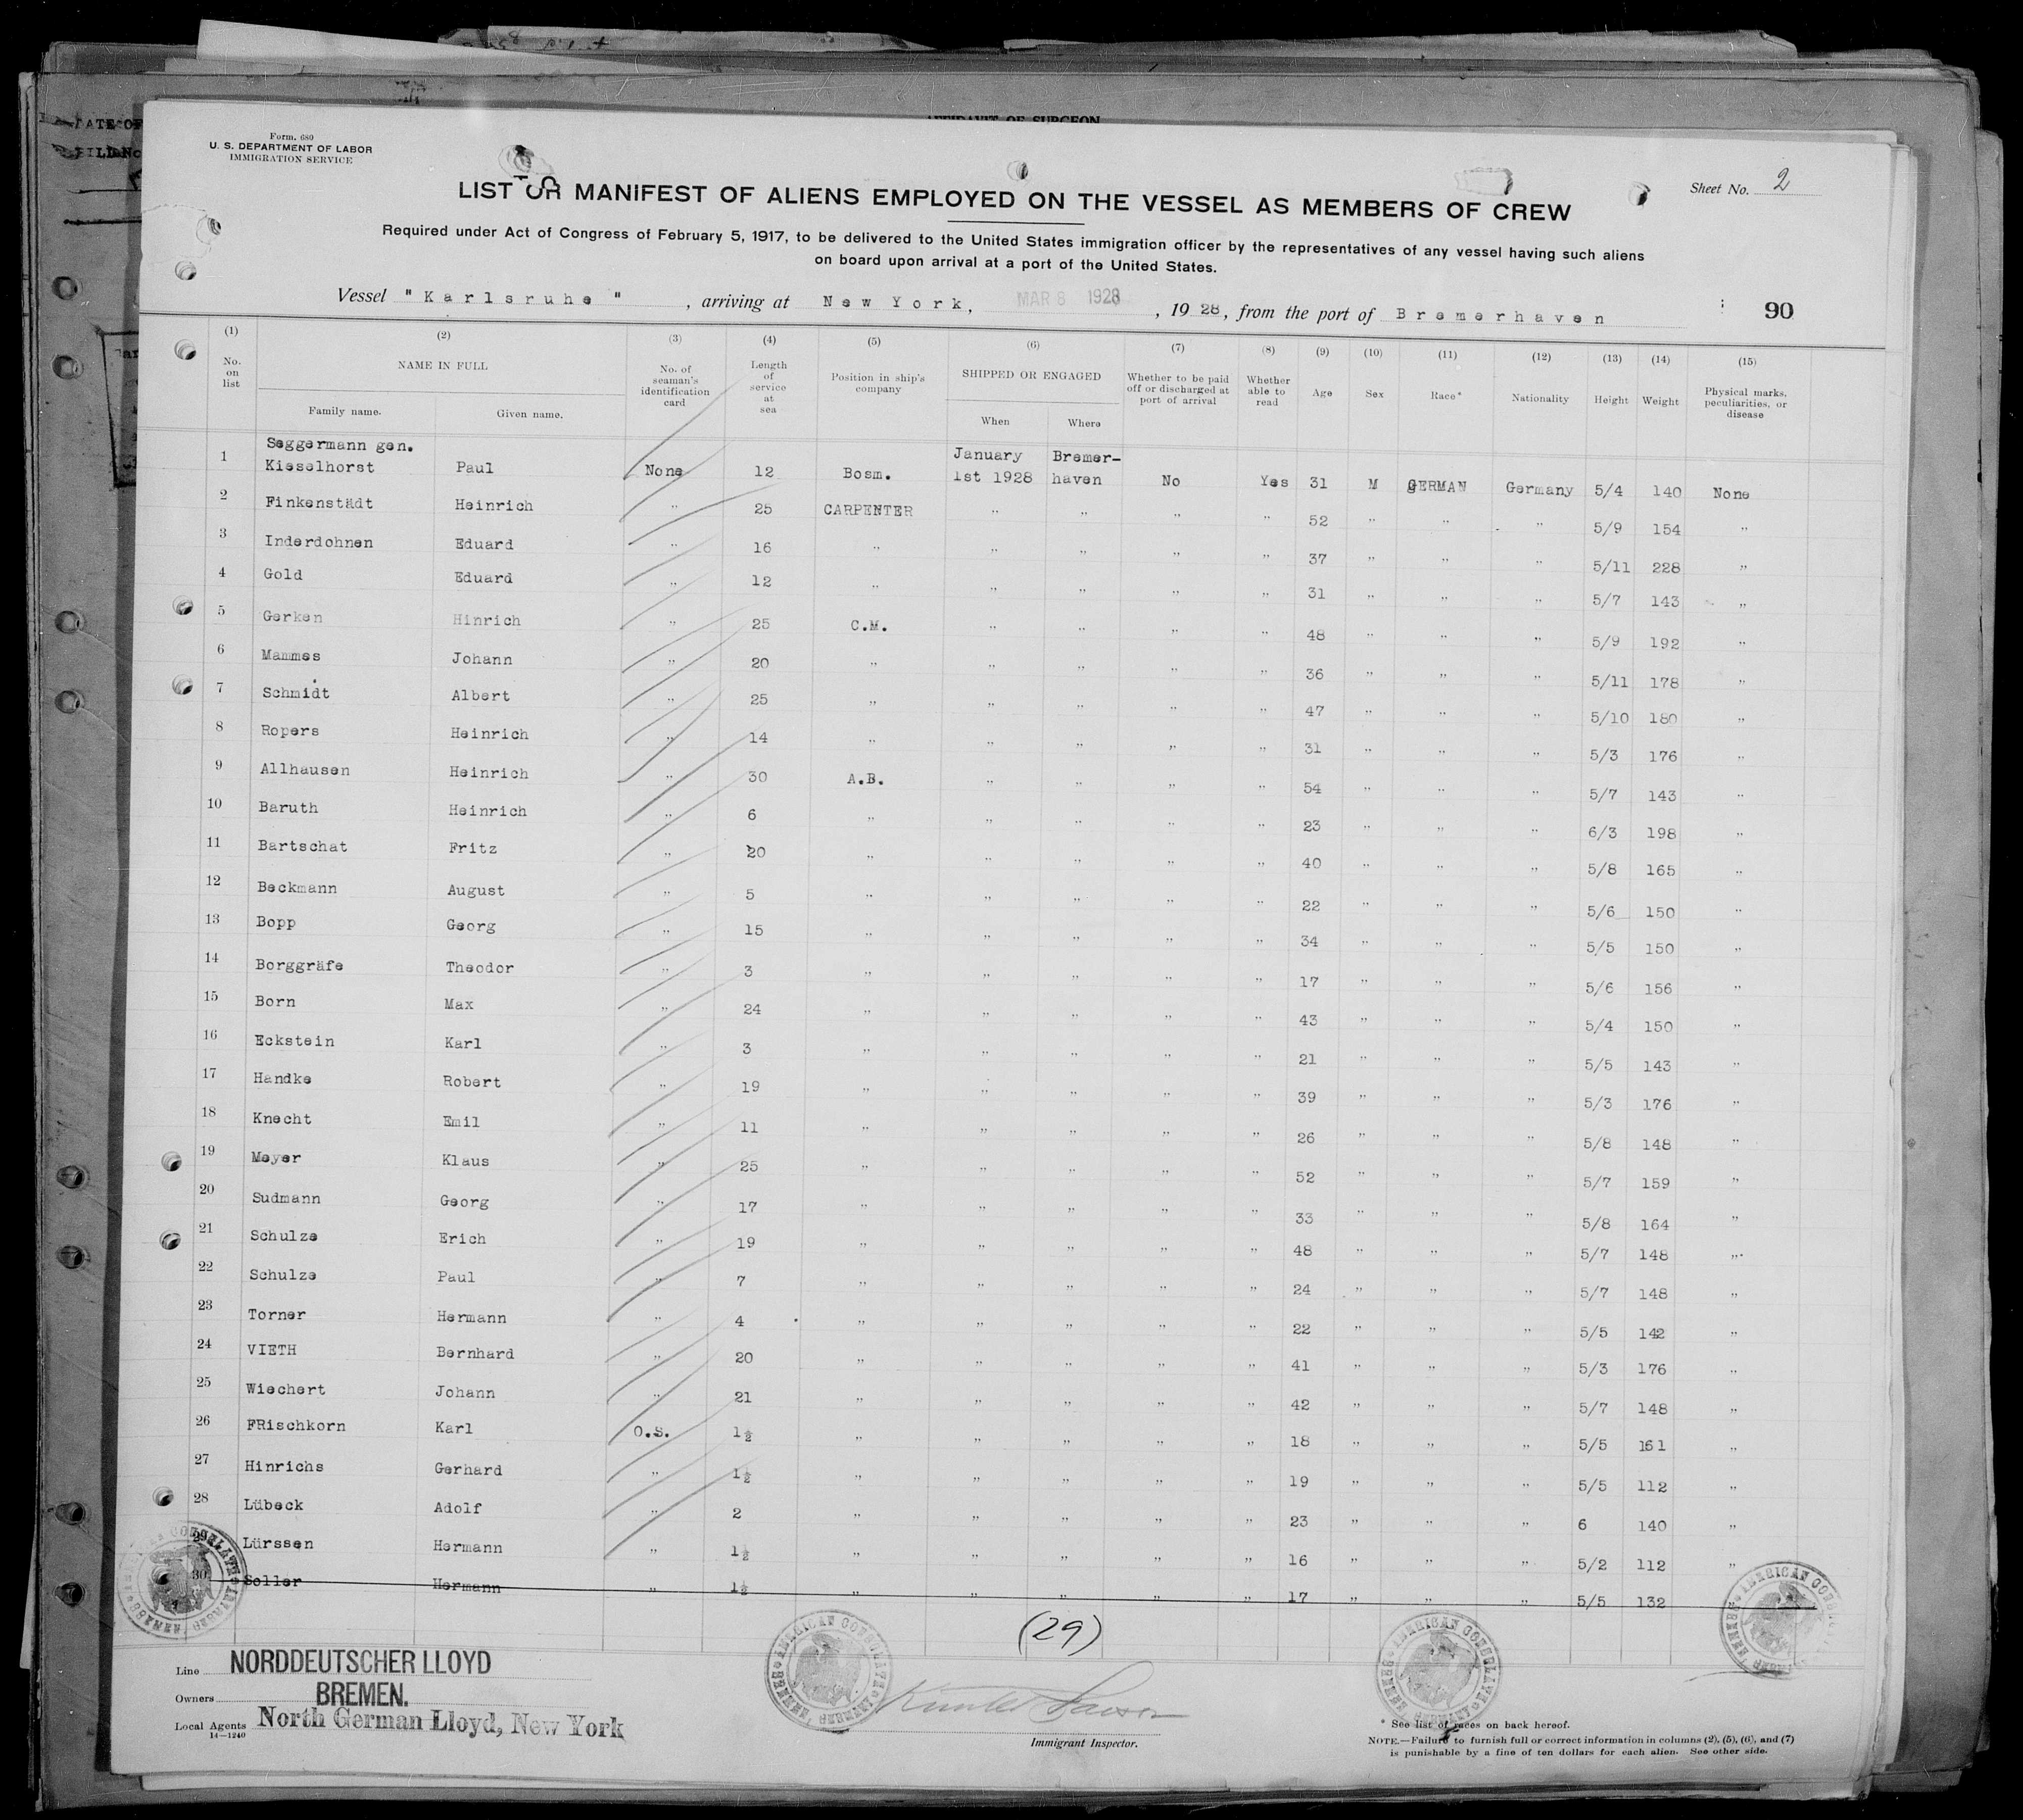 AFFIDAVIT OF SURGEON
Form. 680
U. S. DEPARTMENT OF LABOR
IMMIGRATION SERVICE
Sheet No. 2
LIST OR MANIFEST OF ALIENS EMPLOYED ON THE VESSEL AS MEMBERS OF CREW
Required under Act of Congress of February 5, 1917, to be delivered to the United States immigration officer by the representatives of any vessel having such aliens
on board upon arrival at a port of the United States.
Vessel "Karlsruhe", arriving at New York, MAR 8 1928, 1928, from the port of Bremerhaven 90
(1) (2) (3) (4) (5) (6) (7) (8) (9) (10) (11) (12) (13) (14) (15)
No. on list NAME IN FULL Family name. Given name. No. of seaman's identification card Length of service at sea Position in ship's company SHIPPED OR ENGAGED When Where Whether to be paid off or discharged at port of arrival Whether able to read Age Sex Race* Nationality Height Weight Physical marks, peculiarities, or disease
Seggermann gen. January Bremer-
1 Kieselhorst Paul None 12 Bosm. 1st 1928 haven No Yes 31 M GERMAN Germany 5/4 140 None
2 Finkenstädt Heinrich " 25 CARPENTER " " " " 52 " " " 5/9 154 "
3 Inderdohnen Eduard " 16 " " " " " 37 " " " 5/11 228 "
4 Gold Eduard " 12 " " " " " 31 " " " 5/7 143 "
5 Gerken Hinrich " 25 C.M. " " " " 48 " " " 5/9 192 "
6 Mammes Johann " 20 " " " " " 36 " " " 5/11 178 "
7 Schmidt Albert " 25 " " " " " 47 " " " 5/10 180 "
8 Ropers Heinrich " 14 " " " " " 31 " " " 5/3 176 "
9 Allhausen Heinrich " 30 A.B. " " " " 54 " " " 5/7 143 "
10 Baruth Heinrich " 6 " " " " " 23 " " " 6/3 198 "
11 Bartschat Fritz " 20 " " " " " 40 " " " 5/8 165 "
12 Beckmann August " 5 " " " " " 22 " " " 5/6 150 "
13 Bopp Georg " 15 " " " " " 34 " " " 5/5 150 "
14 Borggräfe Theodor " 3 " " " " " 17 " " " 5/6 156 "
15 Born Max " 24 " " " " " 43 " " " 5/4 150 "
16 Eckstein Karl " 3 " " " " " 21 " " " 5/5 143 "
17 Handke Robert " 19 " " " " " 39 " " " 5/3 176 "
18 Knecht Emil " 11 " " " " " 26 " " " 5/8 148 "
19 Meyer Klaus " 25 " " " " " 52 " " " 5/7 159 "
20 Sudmann Georg " 17 " " " " " 33 " " " 5/8 164 "
21 Schulze Erich " 19 " " " " " 48 " " " 5/7 148 "
22 Schulze Paul " 7 " " " " " 24 " " " 5/7 148 "
23 Torner Hermann " 4 " " " " " 22 " " " 5/5 142 "
24 VIETH Bernhard " 20 " " " " " 41 " " " 5/3 176 "
25 Wiechert Johann " 21 " " " " " 42 " " " 5/7 148 "
26 FRischkorn Karl O.S. 1½ " " " " " 18 " " " 5/5 161 "
27 Hinrichs Gerhard " 1½ " " " " " 19 " " " 5/5 112 "
28 Lübeck Adolf " 2 " " " " " 23 " " " 6 140 "
29 Lürssen Hermann " 1½ " " " " " 16 " " " 5/2 112 "
30 Soller Hermann " 1½ " " " " " 17 " " " 5/5 132
(29)
Line NORDDEUTSCHER LLOYD
Owners BREMEN.
Local Agents North German Lloyd, New York
14—1240
Immigrant Inspector.
* See list of races on back hereof.
NOTE.—Failure to furnish full or correct information in columns (2), (5), (6), and (7)
is punishable by a fine of ten dollars for each alien. See other side.
AMERICAN CONSULATE